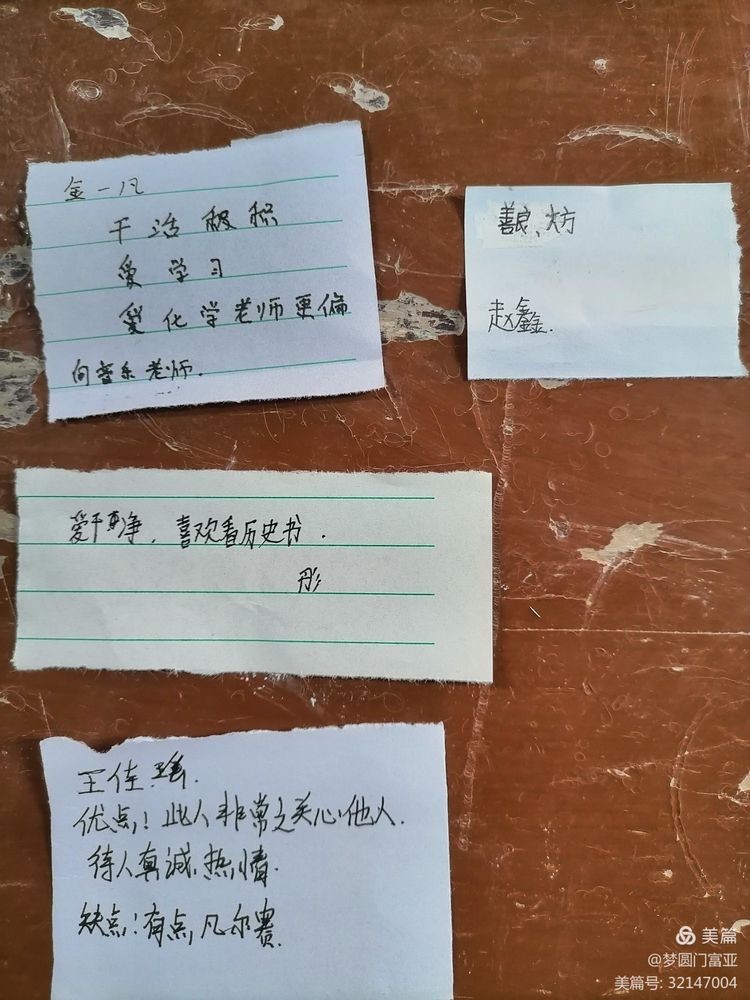 金一凡
干活极积
爱学习
爱化学老师更偏
向音乐老师.
善良、大方
赵鑫.
爱干净，喜欢看历史书.
彤
王佳瑶.
优点：此人非常之关心他人.
待人真诚.热情.
缺点：有点凡尔赛.
美篇
@梦圆门富亚
美篇号: 32147004